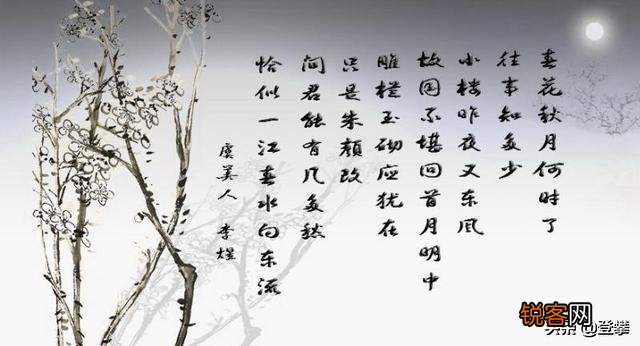 春花秋月何时了
往事知多少
小楼昨夜又东风
故国不堪回首月明中
雕栏玉砌应犹在
只是朱颜改
问君能有几多愁
恰似一江春水向东流
虞美人 李煜
锐客网
@登攀